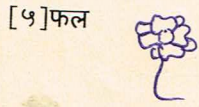 [५]फल